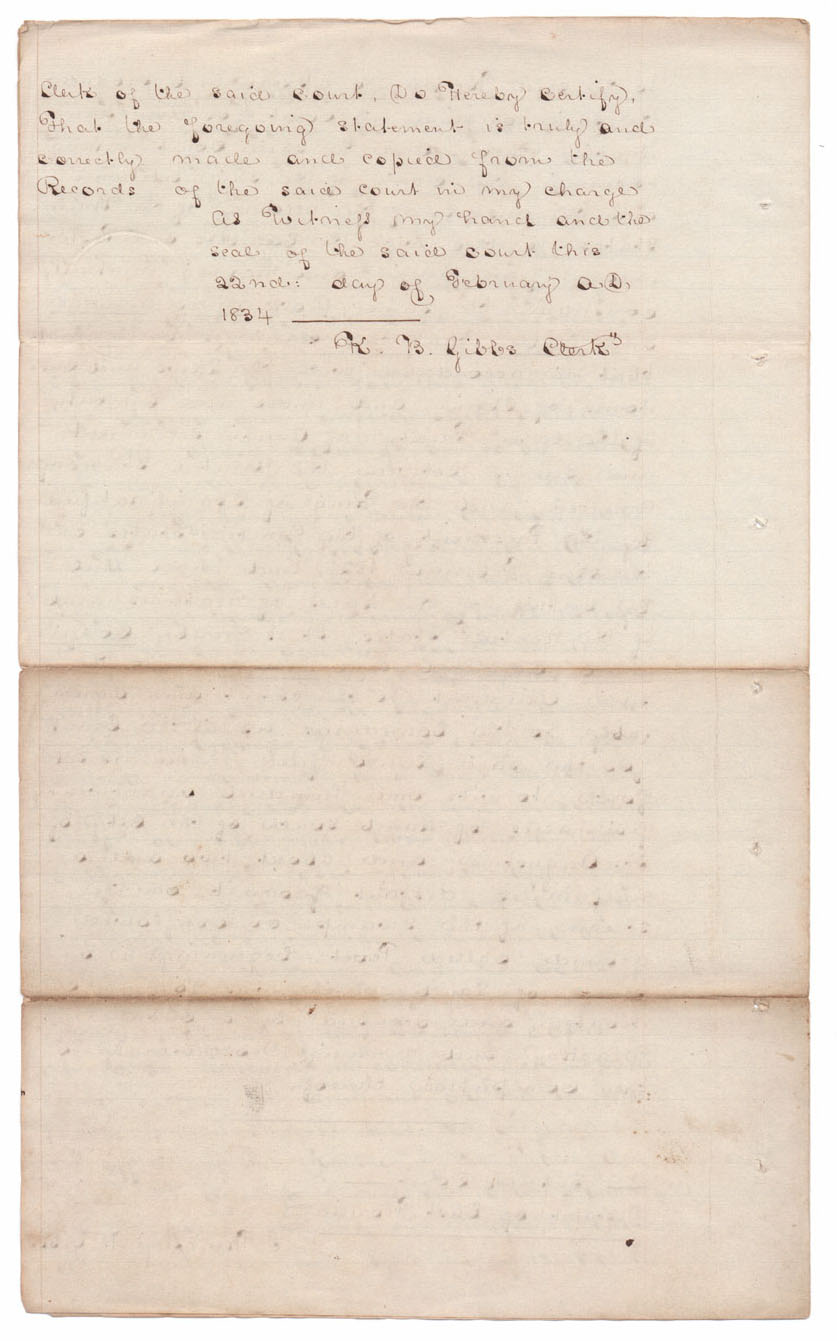 Clerk of the said court, Do Hereby certify,
That the foregoing statement is truly and
correctly made and copied from the
Records of the said court in my charge
As Witness my hand and the
seal of the said court this
22nd: day of February A.D.
1834
K. B. Gibbs Clerk